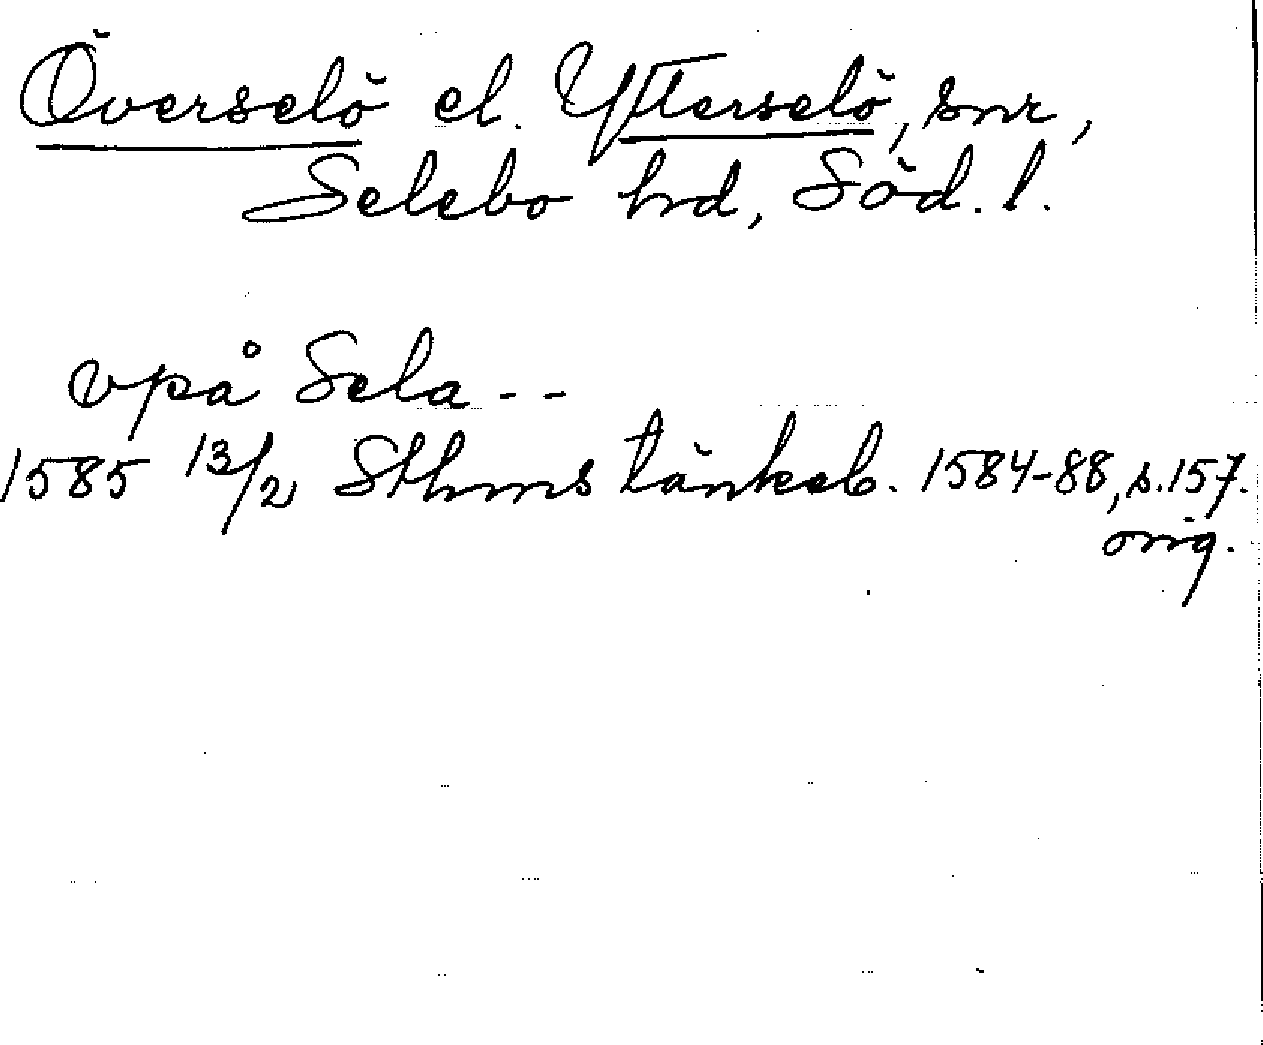 Överselö el. Ytterselö, snr,
Selebo hd, Söd. l.
vpå Sela - -
1585 13/2 Sthms tänkeb. 1584-88, s. 157.
orig.